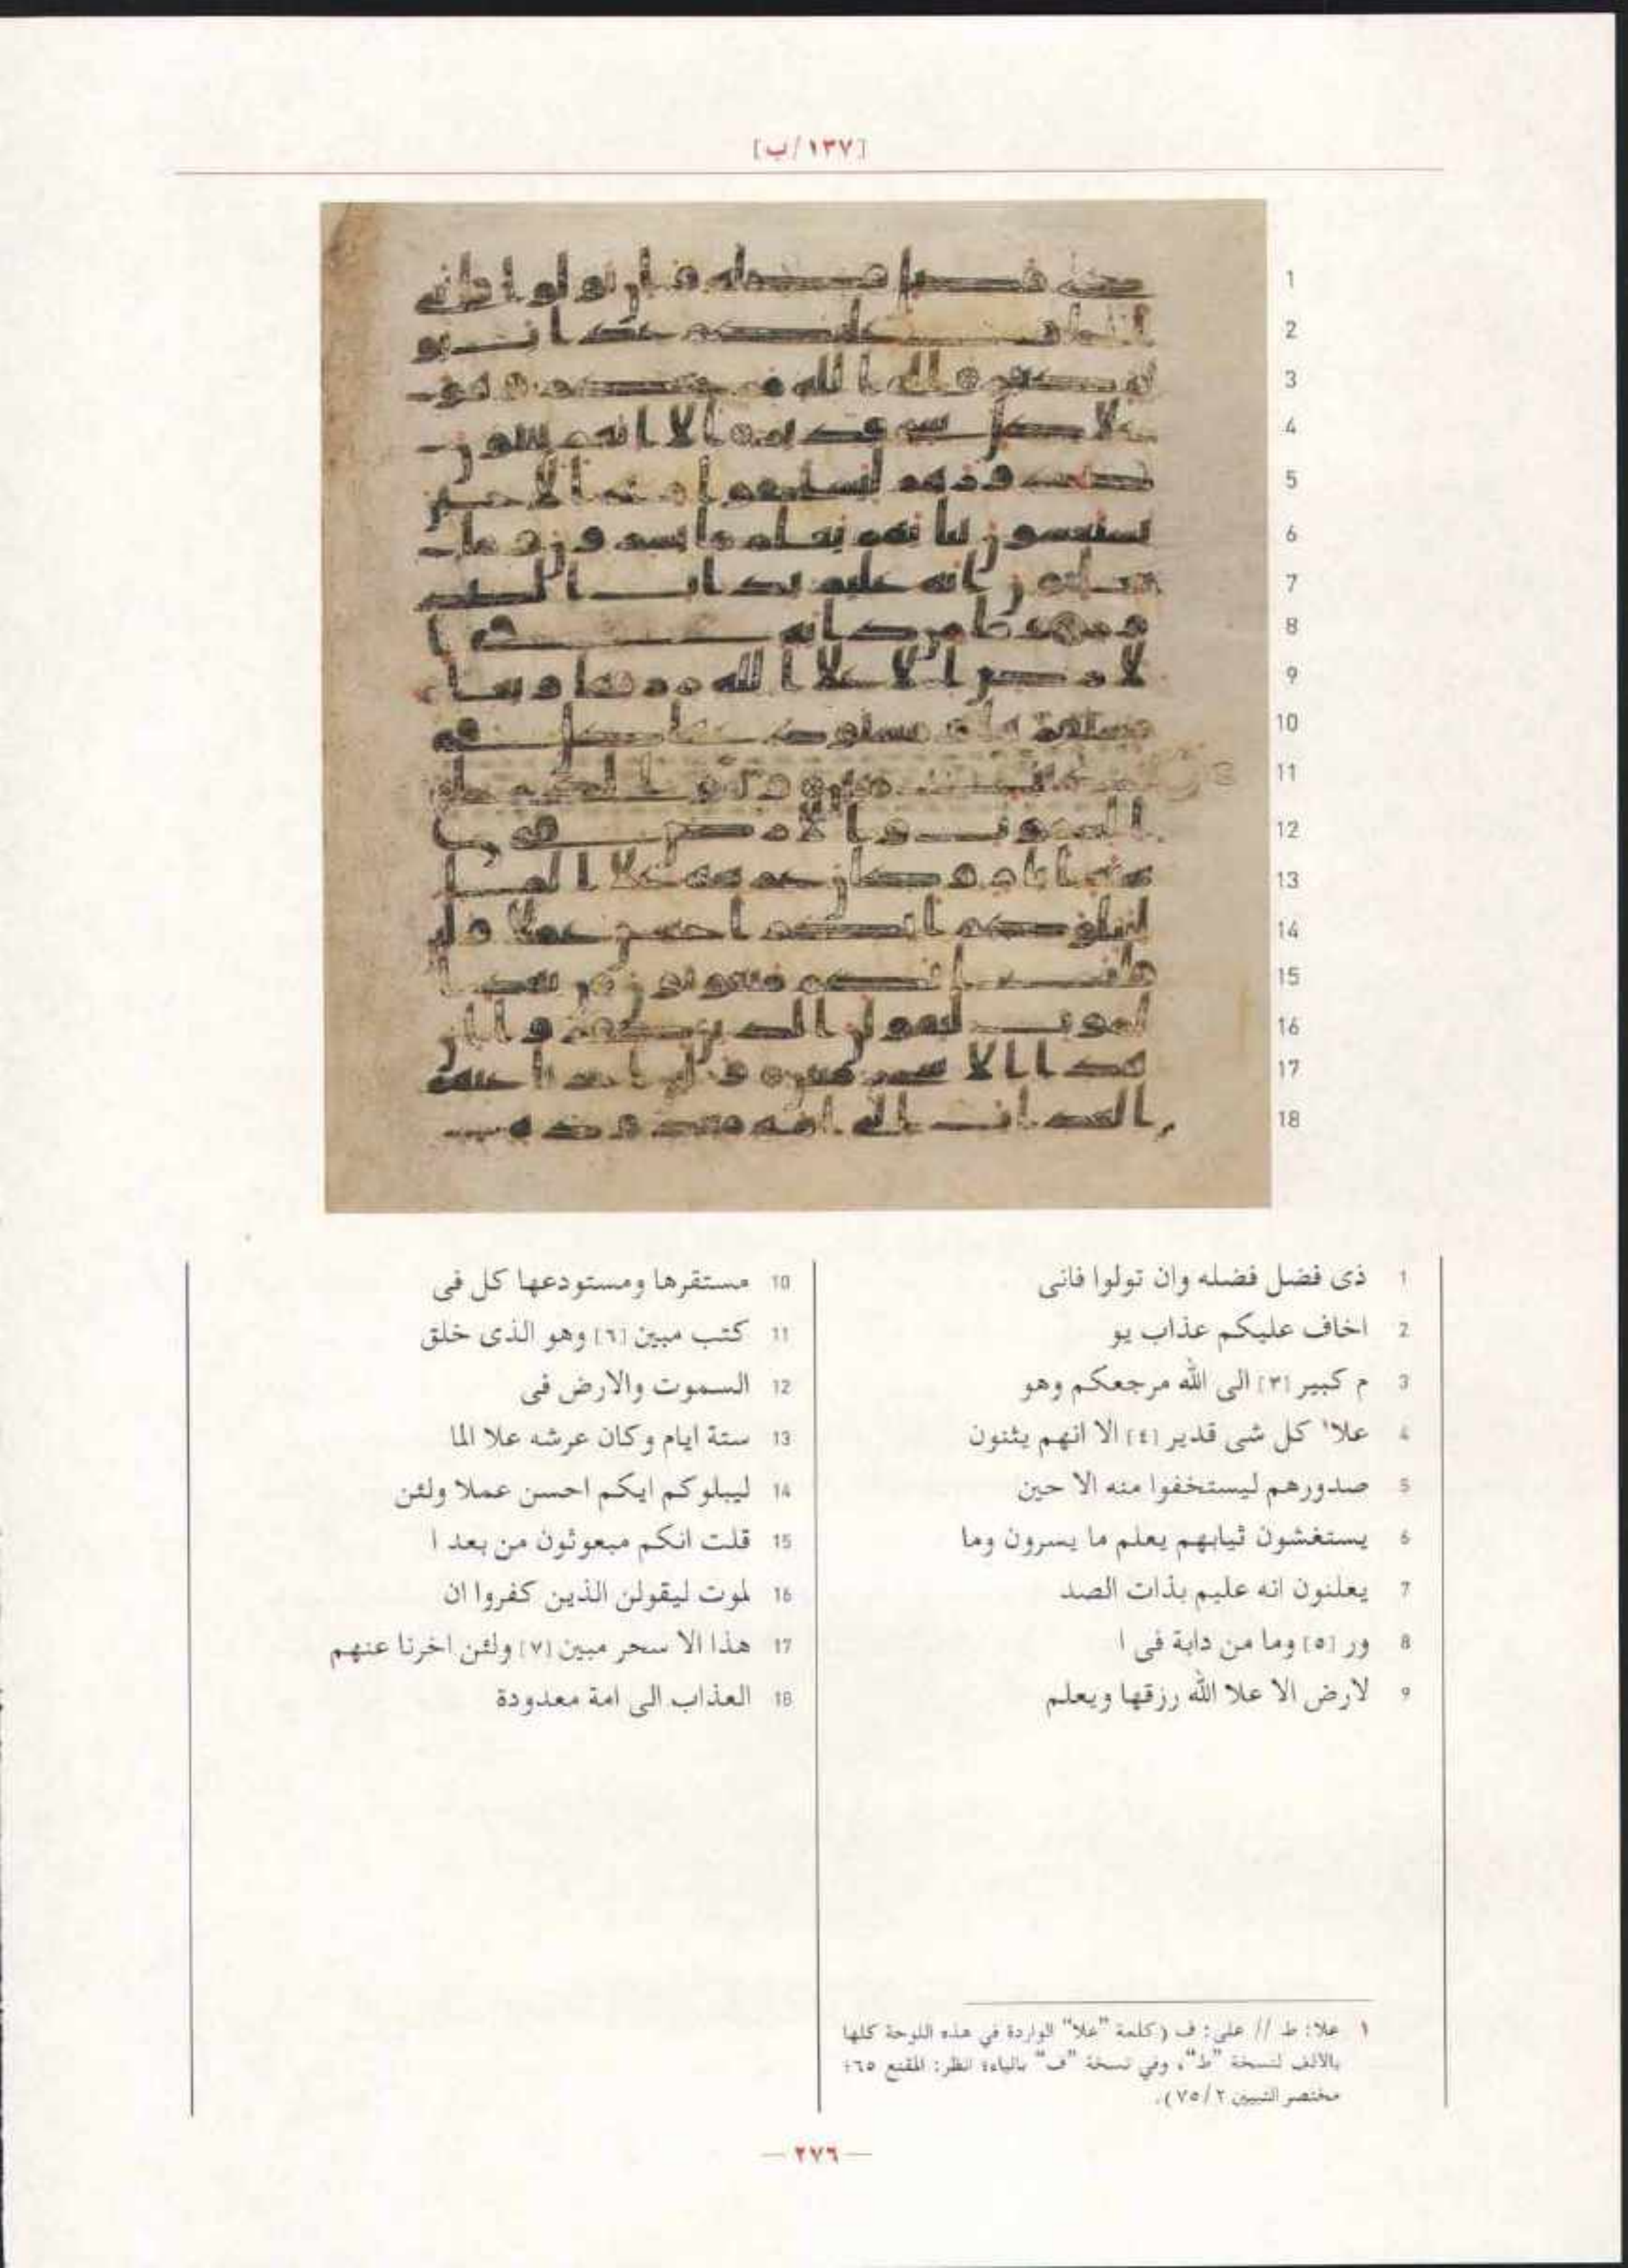 [١٣٧/ب]
1 ذى فضل فضله وان تولوا فانى
2 اخاف عليكم عذاب يو
3 م كبير [٣] الى الله مرجعكم وهو
4 علا١ كل شى قدير [٤] الا انهم يثنون
5 صدورهم ليستخفوا منه الا حين
6 يستغشون ثيابهم يعلم ما يسرون وما
7 يعلنون انه عليم بذات الصد
8 ور [٥] وما من دابة فى ا
9 لارض الا علا الله رزقها ويعلم
10 مستقرها ومستودعها كل فى
11 كتب مبين [٦] وهو الذى خلق
12 السموت والارض فى
13 ستة ايام وكان عرشه علا الما
14 ليبلوكم ايكم احسن عملا ولئن
15 قلت انكم مبعوثون من بعد ا
16 لموت ليقولن الذين كفروا ان
17 هذا الا سحر مبين [٧] ولئن اخرنا عنهم
18 العذاب الى امة معدودة
١ علا: ط // على: ف (كلمة "علا" الواردة في هذه اللوحة كلها
بالالف لنسخة "ط"، وفي نسخة "ف" بالياء؛ انظر: المقنع ٦٥؛
مختصر التبيين ٧٥/٢).
— ٢٧٦ —